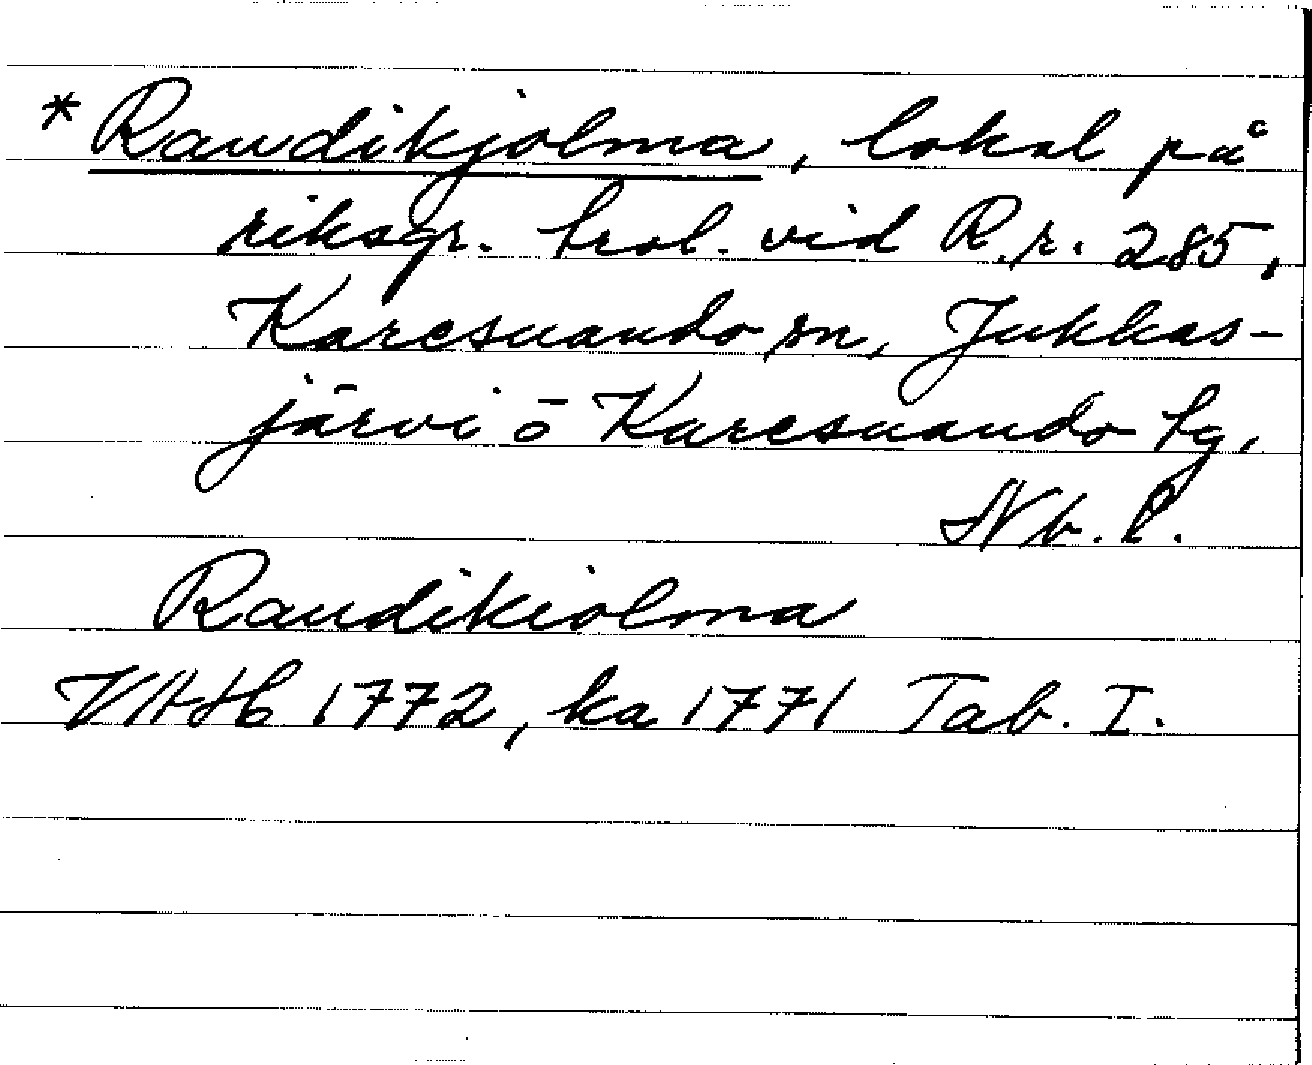 * Raudikjolma, lokal på
riksgr. trol. vid R.r. 285,
Karesuando sn, Jukkas-
järvi o Karesuando tg,
Nb. l.
Raudikiolma
VAH 1772, ka 1771 Tab. I.